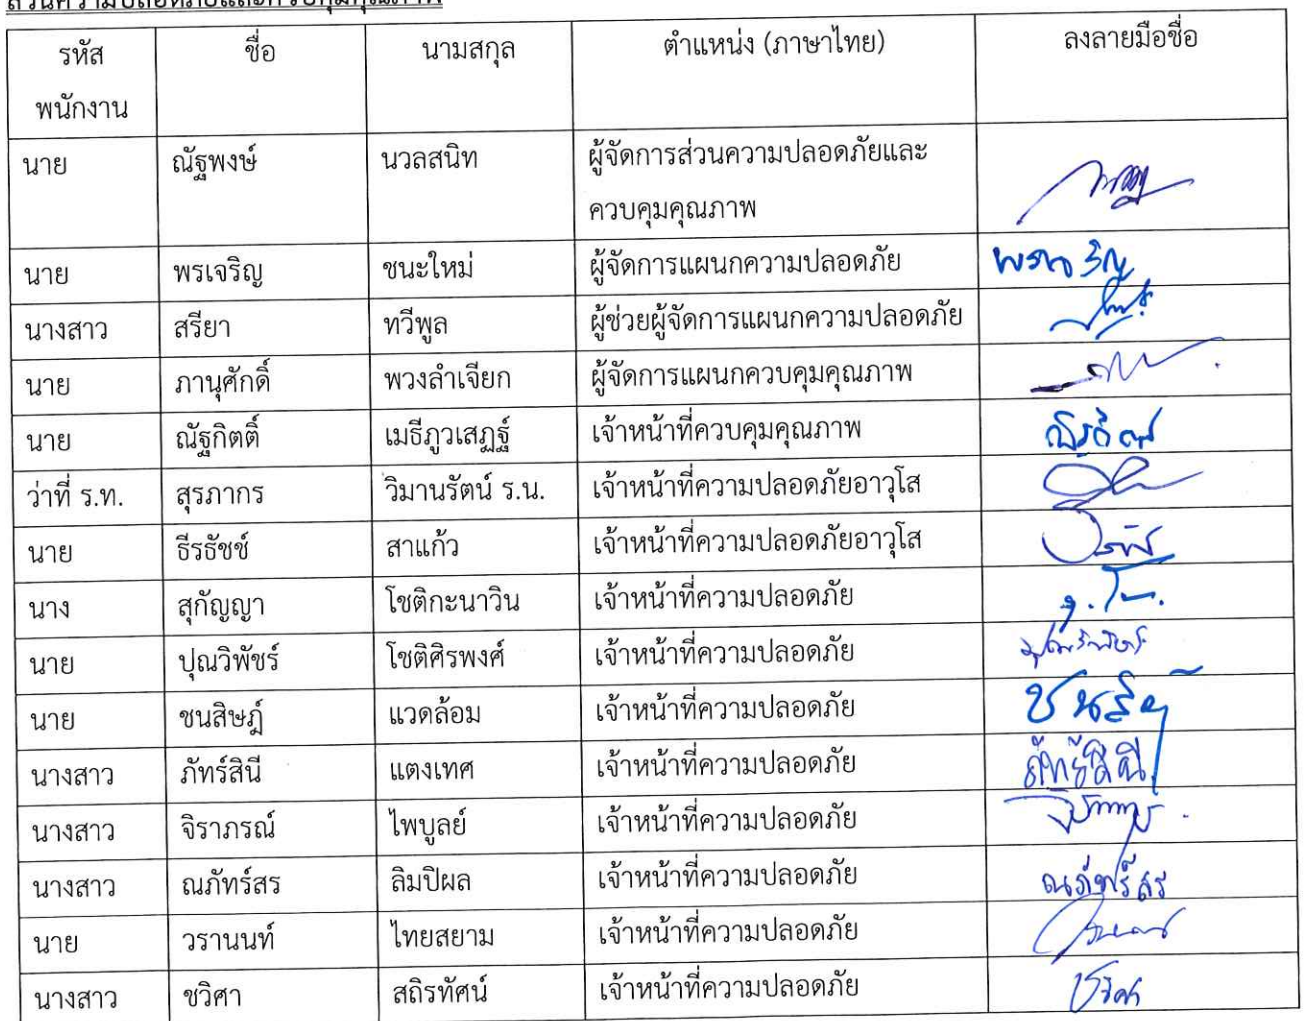 ส่วนความปลอดภัยและควบคุมคุณภาพ
รหัส ชื่อ นามสกุล ตำแหน่ง (ภาษาไทย) ลงลายมือชื่อ
พนักงาน
นาย ณัฐพงษ์ นวลสนิท ผู้จัดการส่วนความปลอดภัยและ
ควบคุมคุณภาพ
นาย พรเจริญ ชนะใหม่ ผู้จัดการแผนกความปลอดภัย พรเจริญ
นางสาว สรียา ทวีพูล ผู้ช่วยผู้จัดการแผนกความปลอดภัย
นาย ภานุศักดิ์ พวงลำเจียก ผู้จัดการแผนกควบคุมคุณภาพ
นาย ณัฐกิตติ์ เมธีภูวเสฏฐ์ เจ้าหน้าที่ควบคุมคุณภาพ
ว่าที่ ร.ท. สุรภากร วิมานรัตน์ ร.น. เจ้าหน้าที่ความปลอดภัยอาวุโส
นาย ธีรธัชช์ สาแก้ว เจ้าหน้าที่ความปลอดภัยอาวุโส
นาง สุกัญญา โชติกะนาวิน เจ้าหน้าที่ความปลอดภัย
นาย ปุณวิพัชร์ โชติศิรพงศ์ เจ้าหน้าที่ความปลอดภัย
นาย ชนสิษฎ์ แวดล้อม เจ้าหน้าที่ความปลอดภัย
นางสาว ภัทร์สินี แตงเทศ เจ้าหน้าที่ความปลอดภัย ภัทร์สินี
นางสาว จิราภรณ์ ไพบูลย์ เจ้าหน้าที่ความปลอดภัย
นางสาว ณภัทร์สร ลิมปิผล เจ้าหน้าที่ความปลอดภัย ณภัทร์สร
นาย วรานนท์ ไทยสยาม เจ้าหน้าที่ความปลอดภัย
นางสาว ชวิศา สถิรทัศน์ เจ้าหน้าที่ความปลอดภัย ชวิศา